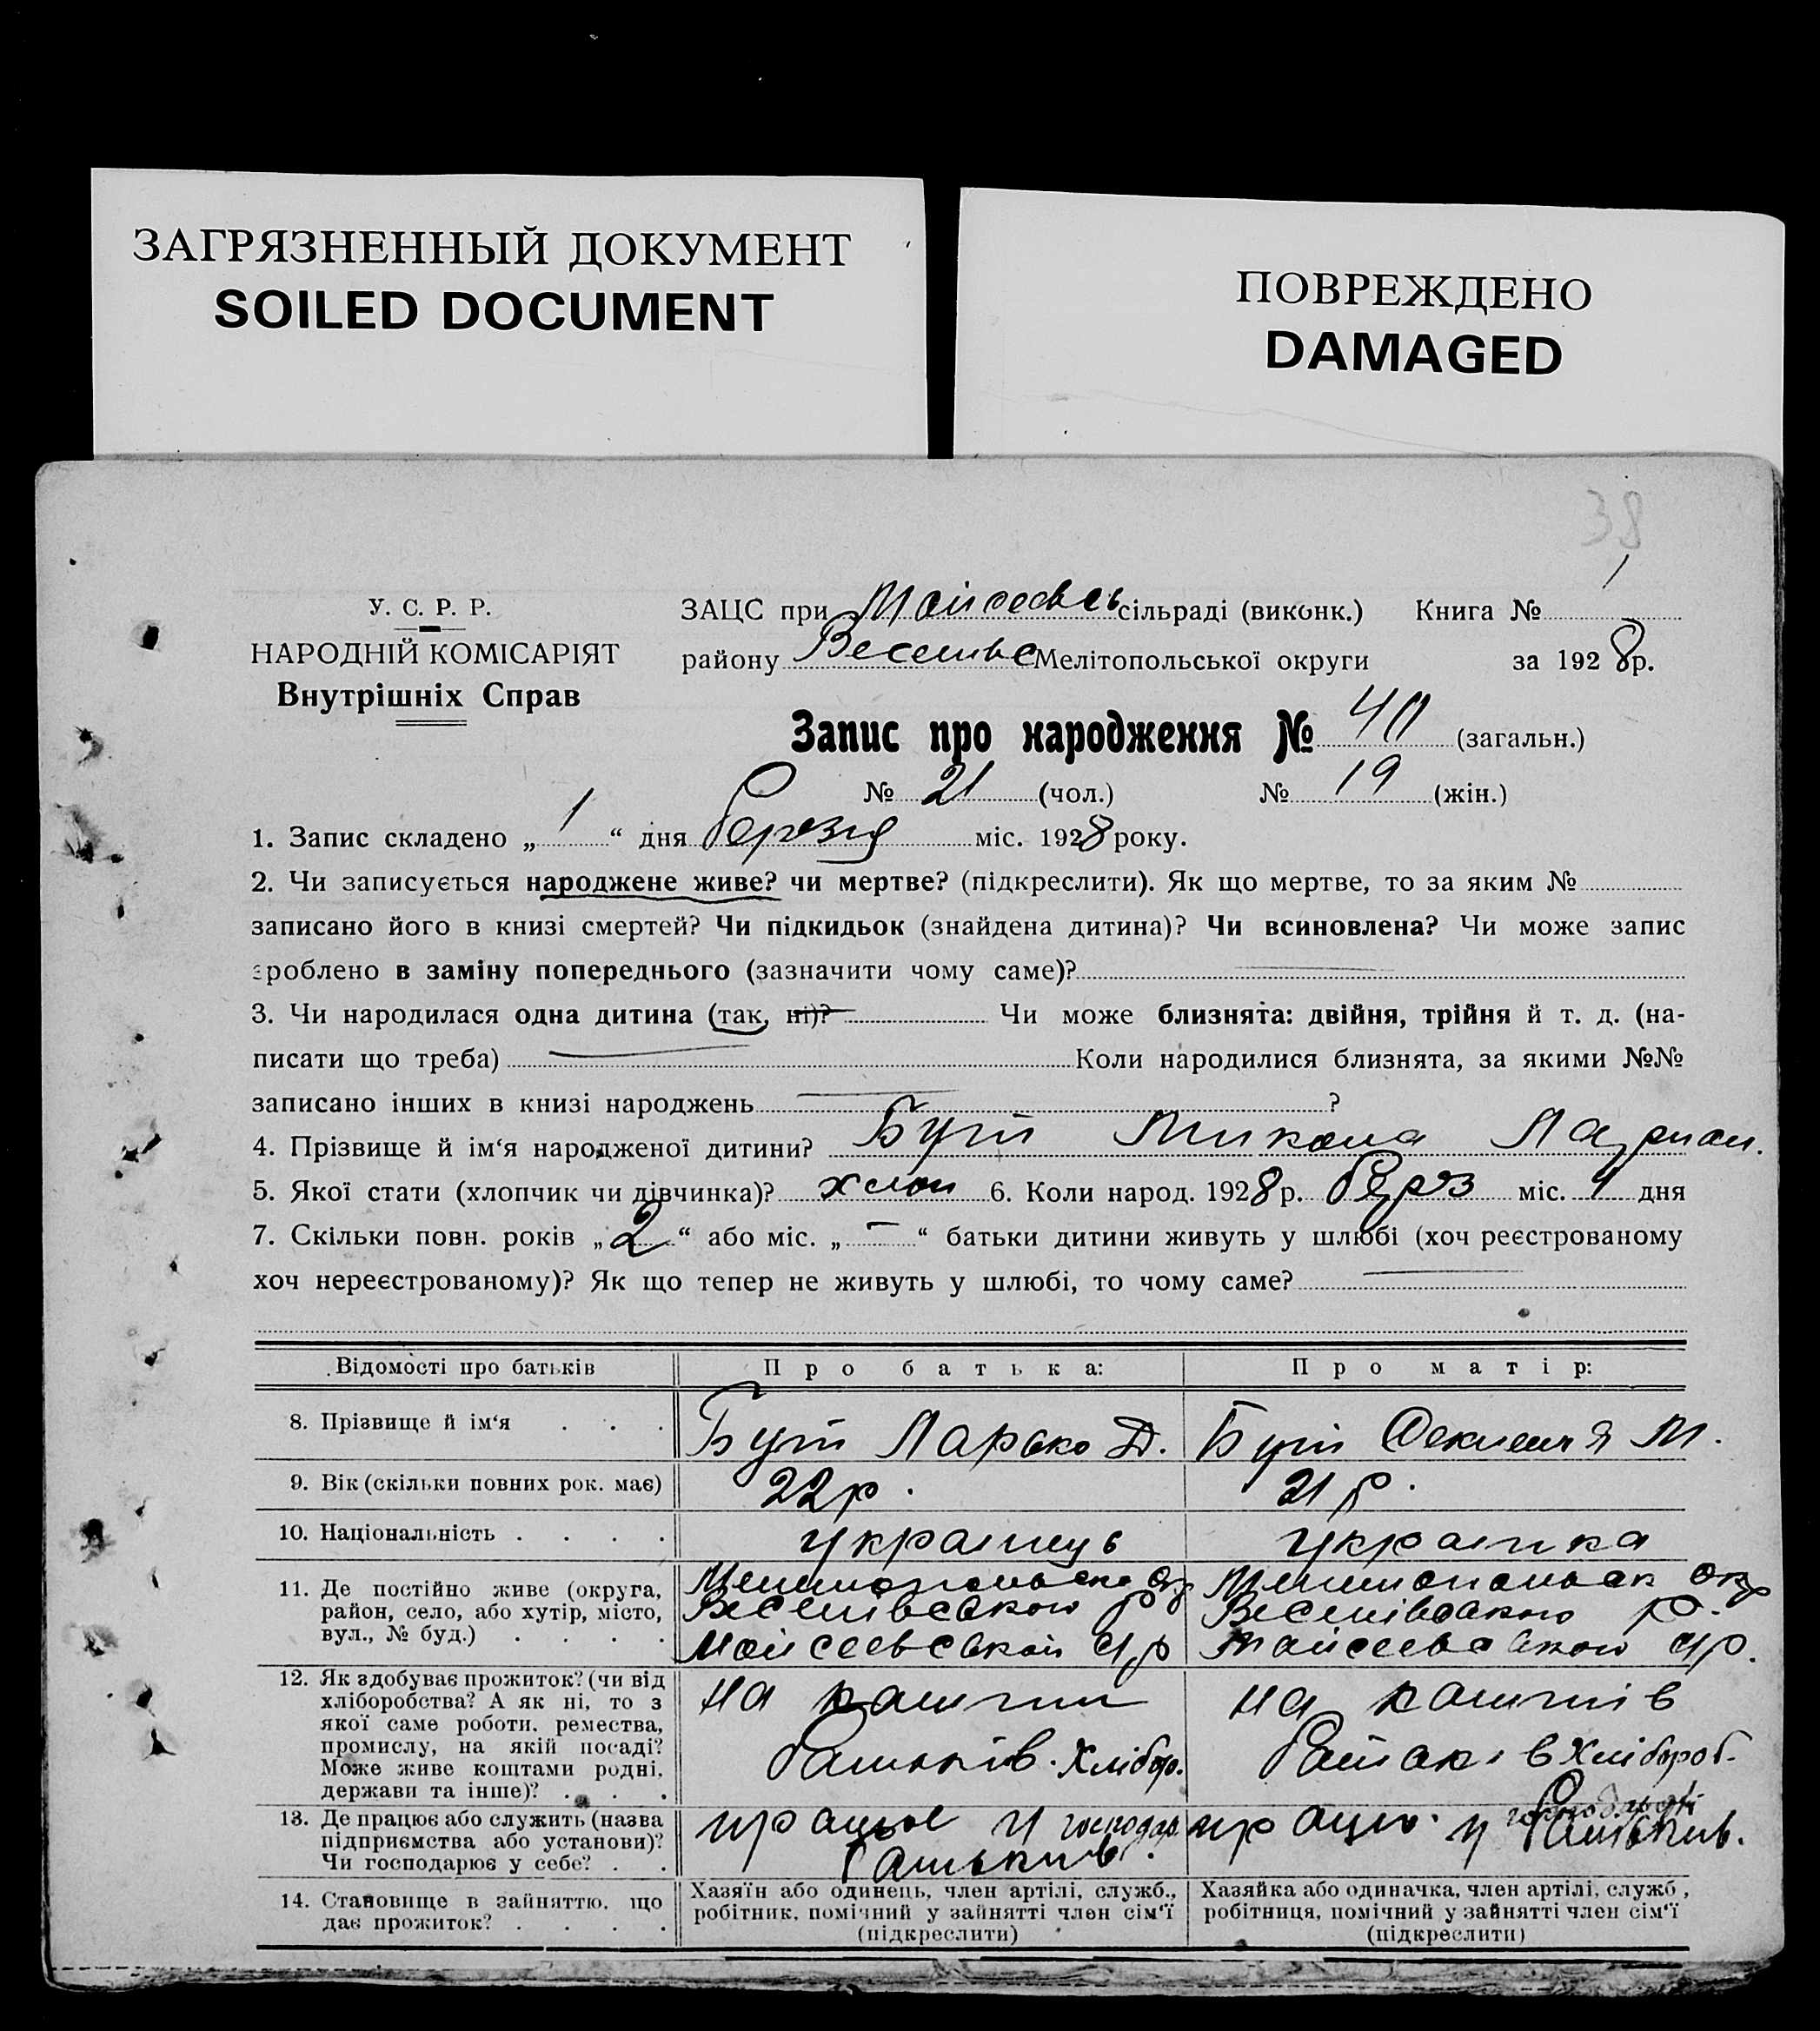 ЗАГРЯЗНЕННЫЙ ДОКУМЕНТ
SOILED DOCUMENT
ПОВРЕЖДЕНО
DAMAGED
38
У. С. Р. Р.
НАРОДНІЙ КОМІСАРІЯТ
Внутрішніх Справ
ЗАЦС при Мойсеевсь сільраді (виконк.) Книга № 1
району Веселівс Мелітопольської округи за 1928 р.
Запис про народження № 40 (загальн.)
№ 21 (чол.) № 19 (жін.)
1. Запис складено „ 1 “ дня березня міс. 1928 року.
2. Чи записується народжене живе? чи мертве? (підкреслити). Як що мертве, то за яким №
записано його в книзі смертей? Чи підкидьок (знайдена дитина)? Чи всиновлена? Чи може запис
зроблено в заміну попереднього (зазначити чому саме)?
3. Чи народилася одна дитина (так, ні)? Чи може близнята: двійня, трійня й т. д. (на-
писати що треба) Коли народилися близнята, за якими №№
записано інших в книзі народжень ?
4. Прізвище й ім‘я народженої дитини? Бут Микола
5. Якої стати (хлопчик чи дівчинка)? хлоп 6. Коли народ. 1928 р. берз міс. 1 дня
7. Скільки повн. років „ 2 “ або міс. „ — “ батьки дитини живуть у шлюбі (хоч реєстрованому
хоч нереєстрованому)? Як що тепер не живуть у шлюбі, то чому саме?
Відомості про батьків Про батька: Про матір:
8. Прізвище й ім‘я Бут Ларько Д. Бут М.
9. Вік (скільки повних рок. має) 22 р. 21 р.
10. Національність українць українка
11. Де постійно живе (округа, Мелитопольська окр Мелитопольск окр
район, село, або хутір, місто, Веселівсвкого р Веселівського р.
вул., № буд.) Мойсеевської с/р Мойсеевського с/р.
12. Як здобуває прожиток? (чи від
хліборобства? А як ні, то з на кошти на коштів
якої саме роботи, ремества,
промислу, на якій посаді? батьків. Хлібор. батьків Хлібороб.
Може живе коштами родні,
держави та інше)?
13. Де працює або служить (назва працює у господар працю. у господарстві
підприємства або установи)? батьків. батьків.
Чи господарює у себе?
14. Становище в зайняттю, що Хазяїн або одинець, член артілі, служб., Хазяйка або одиначка, член артілі, служб.,
дає прожиток? робітник, помічний у зайнятті член сім‘ї робітниця, помічний у зайнятті член сім‘ї
(підкреслити) (підкреслити)